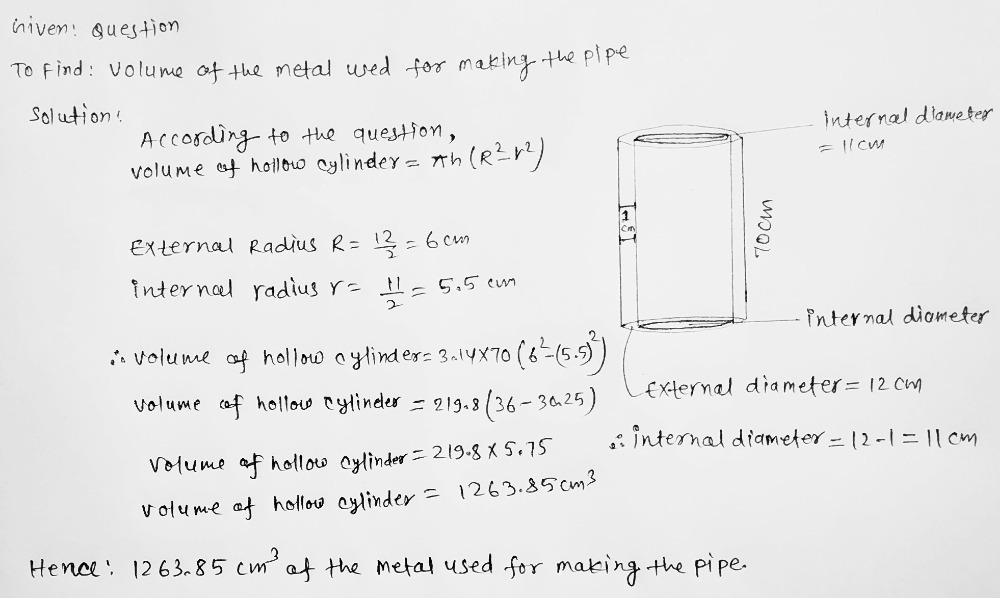 Given: Question
To Find: Volume of the metal used for making the pipe
Solution:
According to the question,
volume of hollow cylinder = πh (R²-r²)
External Radius R = 12/2 = 6 cm
internal radius r = 11/2 = 5.5 cm
∴ volume of hollow cylinder = 3.14×70 (6²-(5.5)²)
volume of hollow cylinder = 219.8 (36-30.25)
volume of hollow cylinder = 219.8 × 5.75
volume of hollow cylinder = 1263.85 cm³
internal diameter
= 11 cm
1
cm
70cm
internal diameter
External diameter = 12 cm
∴ internal diameter = 12-1 = 11 cm
Hence: 1263.85 cm³ of the metal used for making the pipe.